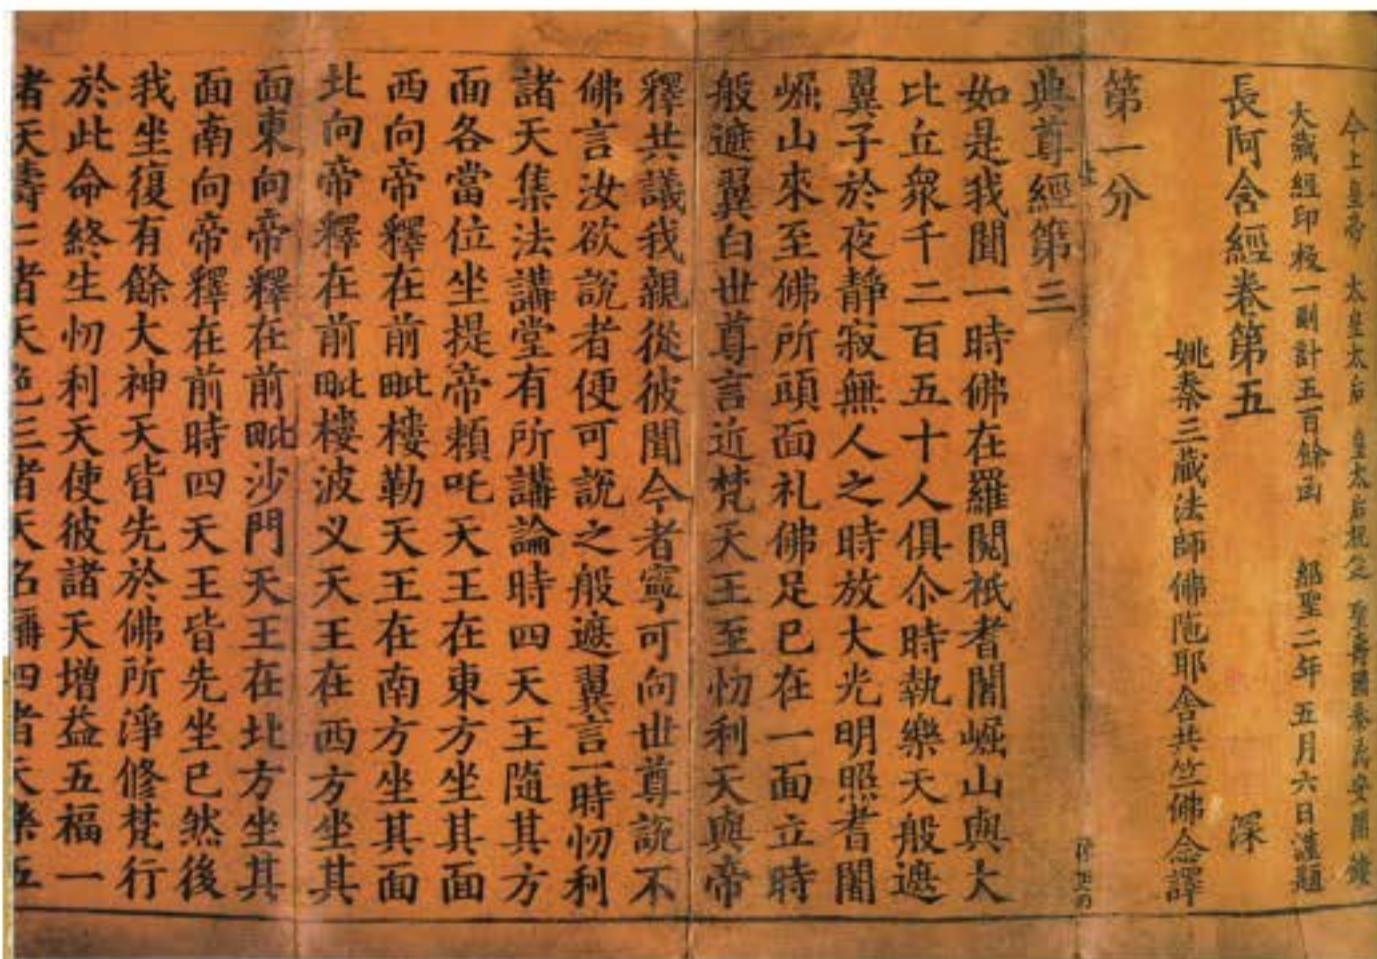 今上皇帝 太皇太后 皇太后祝延 聖壽國泰民安開鏤
大藏經印板一副計五百餘函 紹聖二年五月六日謹題
長阿含經卷第五 深
姚秦三藏法師佛陁耶舍共竺佛念譯
第一分
典尊經第三
如是我聞一時佛在羅閱祇耆闍崛山與大
比丘衆千二百五十人俱尒時執樂天般遮
翼子於夜靜寂無人之時放大光明照耆闍
崛山來至佛所頭面礼佛足已在一面立時
般遮翼白世尊言近梵天王至忉利天與帝
釋共議我親從彼聞今者寧可向世尊說不
佛言汝欲說者便可說之般遮翼言一時忉利
諸天集法講堂有所講論時四天王隨其方
面各當位坐提帝賴吒天王在東方坐其面
西向帝釋在前毗樓勒天王在南方坐其面
北向帝釋在前毗樓波义天王在西方坐其
面東向帝釋在前毗沙門天王在北方坐其
面南向帝釋在前時四天王皆先坐已然後
我坐復有餘大神天皆先於佛所淨修梵行
於此命終生忉利天使彼諸天增益五福一
者天壽二者天色三者天名稱四者天樂五